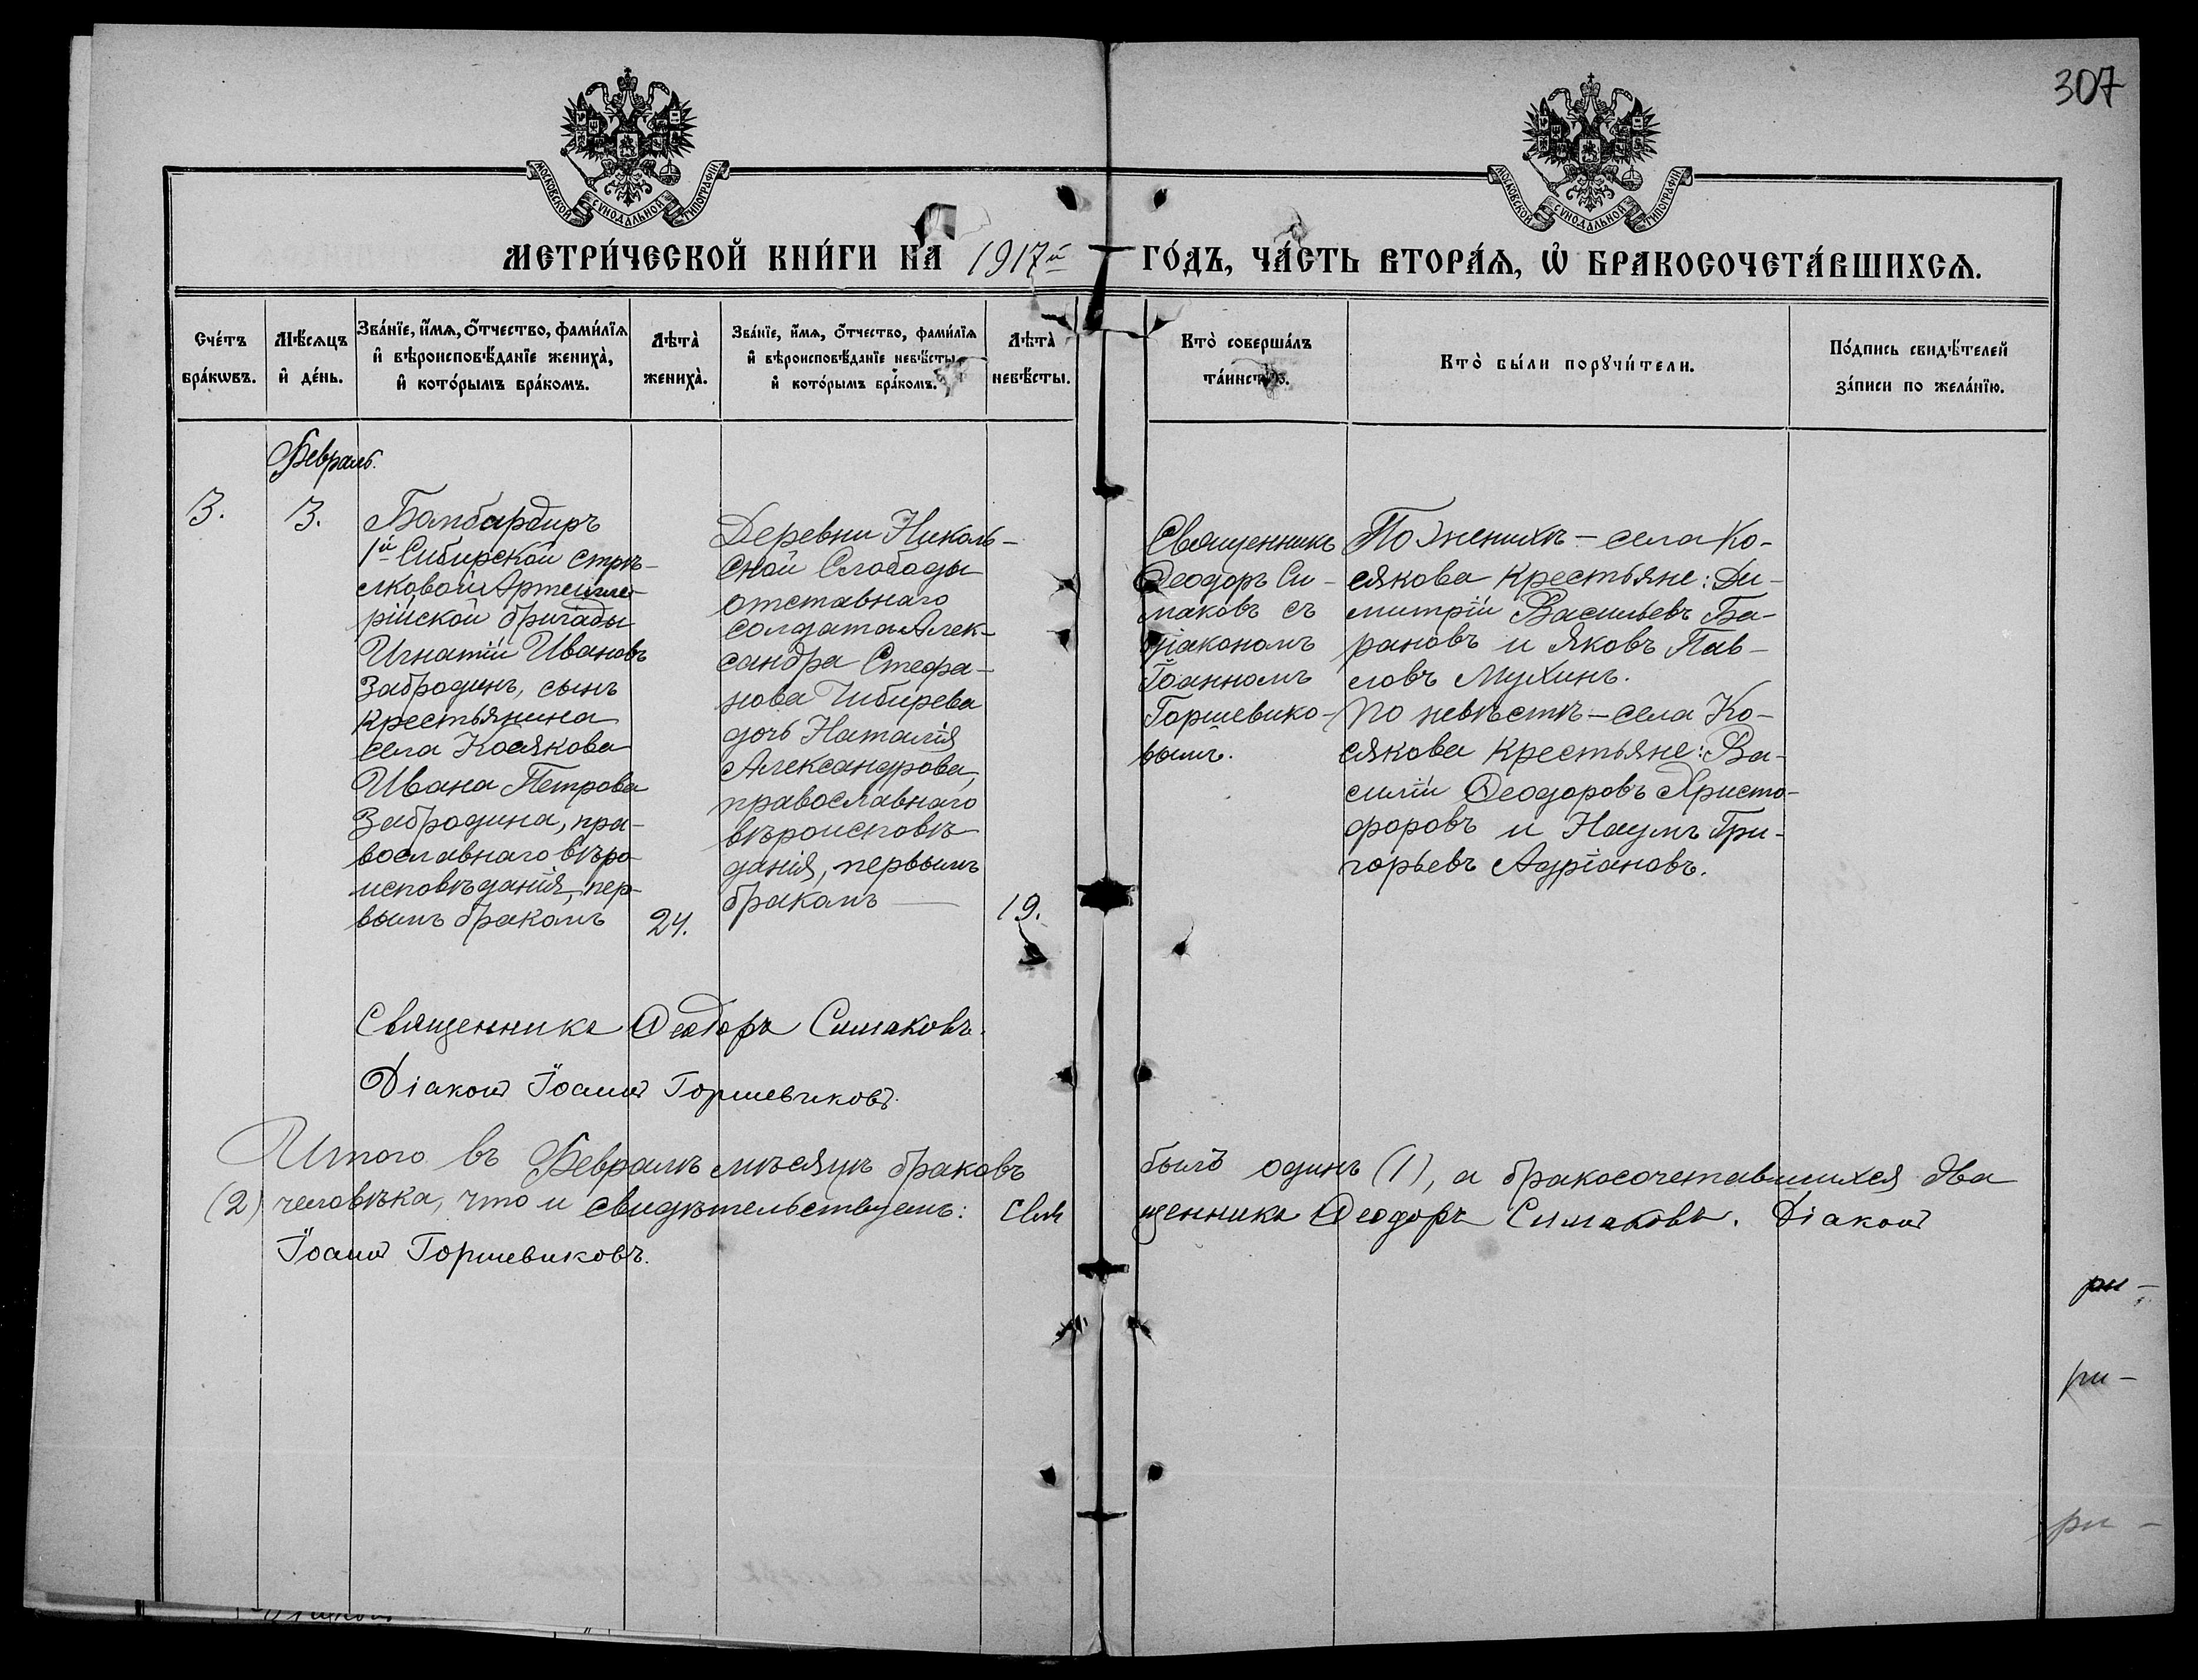 307
МОСКОВСКОЙ СУНОДАЛЬНОЙ ТИПОГРАФІИ
МОСКОВСКОЙ СУНОДАЛЬНОЙ ТИПОГРАФІИ
МЕТРИ́ЧЕСКОЙ КНИ́ГИ НА 1917й ГО́ДЪ, ЧА́СТЬ ВТОРА́Ѧ, Ѡ҆ БРАКОСОЧЕТА́ВШИХСѦ.
Сче́тъ
бра́кѡвъ.
Мѣ́сѧцъ
и҆ де́нь.
Зва́нїе, и҆́мѧ, ѻ҆́тчество, фами́лїѧ
и҆ вѣроисповѣ́данїе жениха̀,
и҆ кото́рымъ бра́комъ.
Лѣта̀
жениха̀.
Зва́нїе, и҆́мѧ, ѻ҆́тчество, фами́лїѧ
и҆ вѣроисповѣ́данїе невѣ́сты,
и҆ кото́рымъ бра́комъ.
Лѣта̀
невѣ́сты.
Кто̀ соверша́лъ
та́инство.
Кто̀ бы́ли порꙋчи́тели.
По́дпись свидѣ́телей
за́писи по жела́нїю.
Февраль.
3.
3.
Бомбардиръ
1й Сибирской стрѣ-
лковой Артилле-
рійской бригады
Игнатій Ивановъ
Забродинъ, сынъ
крестьянина
села Косякова
Ивана Петрова
Забродина, пра-
вославнаго вѣро-
исповѣданія, пер-
вымъ бракомъ
24.
Деревни Николь-
ской Слободы
отставнаго
солдата Алек-
сандра Стефа-
нова Чибирева
дочь Наталія
Александрова,
православнаго
вѣроисповѣ-
данія, первымъ
бракомъ —
19.
Священникъ
Ѳеодоръ Си-
маковъ съ
діакономъ
Іоанномъ
Горшевико-
вымъ.
По женихѣ – села Ко-
сякова крестьяне: Ди-
митрій Васильевъ Ба-
рановъ и Яковъ Пав-
ловъ Мухинъ.
По невѣстѣ – села Ко-
сякова крестьяне: Ва-
силій Ѳеодоровъ Христо-
форовъ и Наумъ Гри-
горьевъ Адріановъ.
Священникъ Ѳеодоръ Симаковъ.
Діаконъ Іоаннъ Горшевиковъ.
Итого въ Февралѣ мѣсяцѣ браковъ былъ одинъ (1), а бракосочетавшихся два
(2) человѣка, что и свидѣтельствуемъ: Священникъ Ѳеодоръ Симаковъ. Діаконъ
Іоаннъ Горшевиковъ.
ри –
ри –
ри –